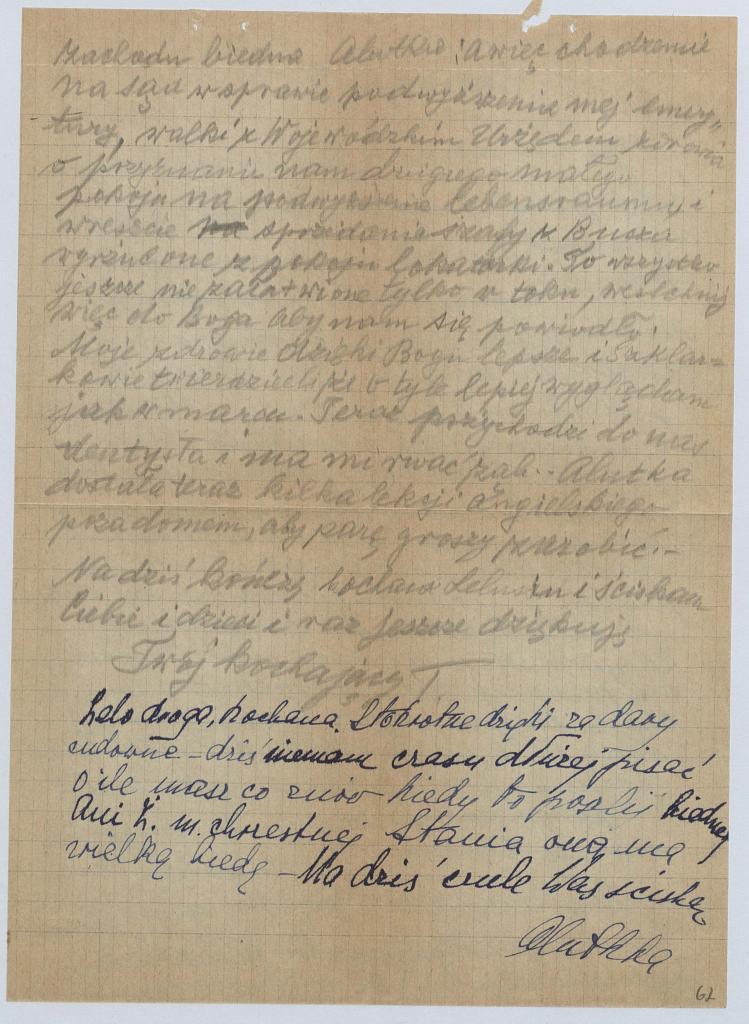 zachodu biedna Alutka: a więc chodzenie
na sąd w sprawie podwyższenia mej emery„
tury, walki z Wojewódzkim Urzędem zdrowia
o przyznanie nam drugiego małego
pokoju na podwyższenie lebensraumu i
wreszcie sprzedanie szafy z Bucza
wyrzucone z pokoju lokatorki. To wszystko
jeszcze nie załatwione tylko w toku, westchnij
więc do Boga aby nam się powiodło.
Moje zdrowie dzięki Bogu lepsze i Szklar=
kowie twierdzieli że o tyle lepiej wyglądam
jak w marcu. Teraz przychodzi do nas
dentysta i ma mi rwać ząb.- Alutka
dostała teraz kilka lekcji angielskiego
poza domem, aby parę groszy zarobić.-
Na dziś kończę kochana Leluniu i ściskam
Ciebie i dzieci i raz jeszcze dziękuję
Twój kochający T
Lelo droga, kochana. Stokrotne dzięki za dary
cudowne – dziś niemam czasu dłużej pisać
o ile masz co znów kiedy to poślij biednej
Ani Ł. m. chrzestnej Stania ona ma
wielką biedę – Na dziś czule Was ściskam
Alutka
62